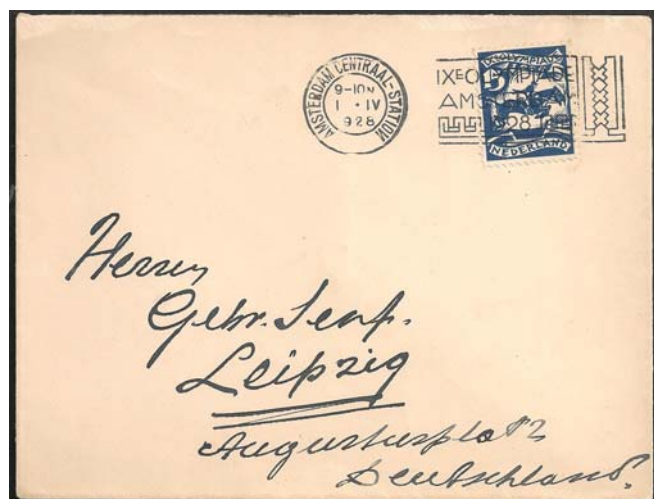 AMSTERDAM CENTRAAL-STATION
9-10N
1 · IV
928
IXE OLYMPIADE
AMSTERDAM
1928
5
NEDERLAND
Herren
Gebr. Senf.
Leipzig
Augustusplatz
Deutschland.